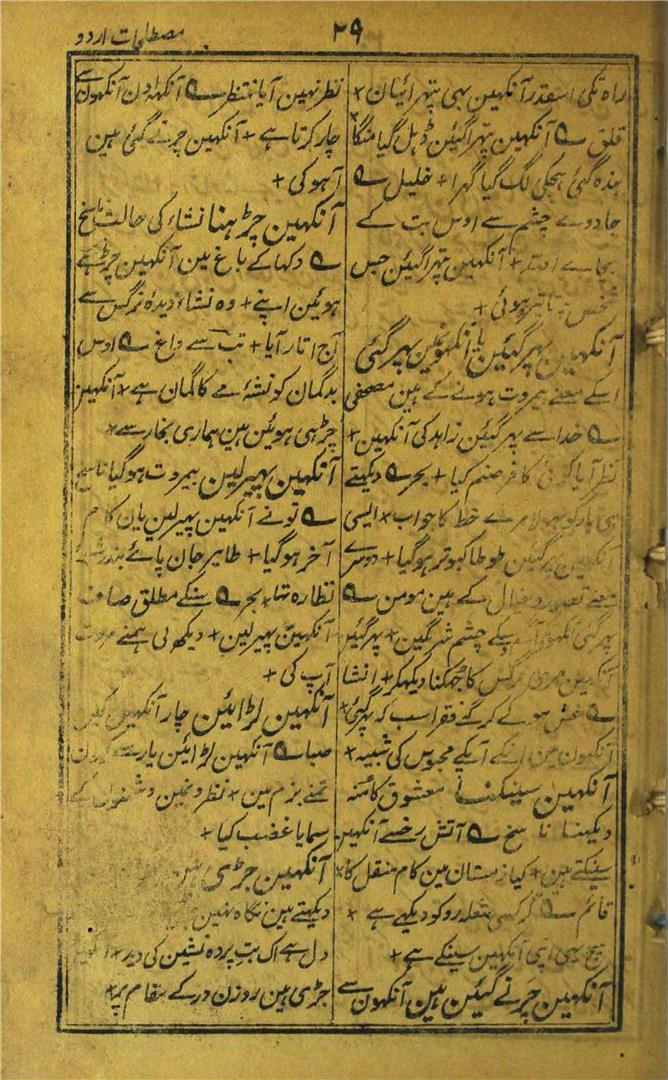 ۲۹
مصطلحات اردو
راہ تکی اسقدر آنکہین بہی پتہرائیان +
قلق ؎ آنکہین پتہرا گیئن ڈہل گیا منکا
بندہ گئی ہچکی لگ گیا گہرا + خلیل ؎
جادوے چشم سے اوس بت کے
بچاے اللہ + آنکہین پتہرا گیئن جس
شخص پہ تاثیر ہوئی +
آنکہین پہر گیئن یا آنکہونمین پہر گئی
اسکے معنے بیمروت ہونے کے ہین مصحفی
؎ خدا سے پہر گیئن زاہد کی آنکہین +
نظر آیا کوئی کافر صنم کیا + بحر ؎ دیکہتے
ہی یار کو بہولا مرے خط کا جواب + ایسی
آنکہین پہر گیئن طوطا کبوتر ہو گیا + دوسرے
معنے تصور و خیال کے ہین مومن ؎
پہر گئی آنکہون چشم شرمگین + پہر گیئن
آنکہین نرگس کا جہکنا دیکہکر + انشا
؎ غش ہو کے گر گئے فقرا سب کہ پہر گئی +
آنکہون مین انکے آپکے مجوس کی شبیہ +
آنکہین سینکنا معشوق کا منہ
دیکہنا ناسخ ؎ آتش رخسے آنکہین
سینکتے ہین + کیا زمستان مین کام منقل کا +
قائم ؎ گر کسی شعلہ رو کو دیکہے ہے +
شیخ بہی اپنی آنکہین سینکے ہے +
آنکہین چرنے گیئن ہین آنکہون سے
نظر نہین آیا منتظر ؎ آنکہہ اون آنکہون سے
چار کرتا ہے + آنکہین چرنے گئی ہین
آہو کی +
آنکہین چڑہنا نشاء کی حالت ناسخ
؎ دکہا کے باغ مین آنکہین چڑہے
ہوئین اپنے + وہ نشاء دیدۂ نرگس سے
آج اتار آیا + تب سے داغ ؎ اوس
بدگمان کو نشۂ مے کا گمان ہے + آنکہین
چڑہی ہوئین ہین ہماری بخار سے +
آنکہین پہیرلین بیمروت ہو گیا ناسخ
؎ تونے آنکہین پہیرلین یان کام
آخر ہو گیا + طایر جان پاے بند
نظارہ تہا + بحر ؎ بنکے مطلق صاف
آنکہین پہیرلین + دیکہہ لی ہمنے مروت
آپ کی +
آنکہین لڑایئن چار آنکہین کین
صبا ؎ آنکہین لڑایئن یار سے
تمنے بزم مین + نظرونمین دشمنون کے
سمایا غضب کیا +
آنکہین جڑی ہین
دیکہتے ہین نگاہ نہین
دل ہے اک بت پردہ نشین کی دید +
جڑی ہین روزن در کے مقام پر +